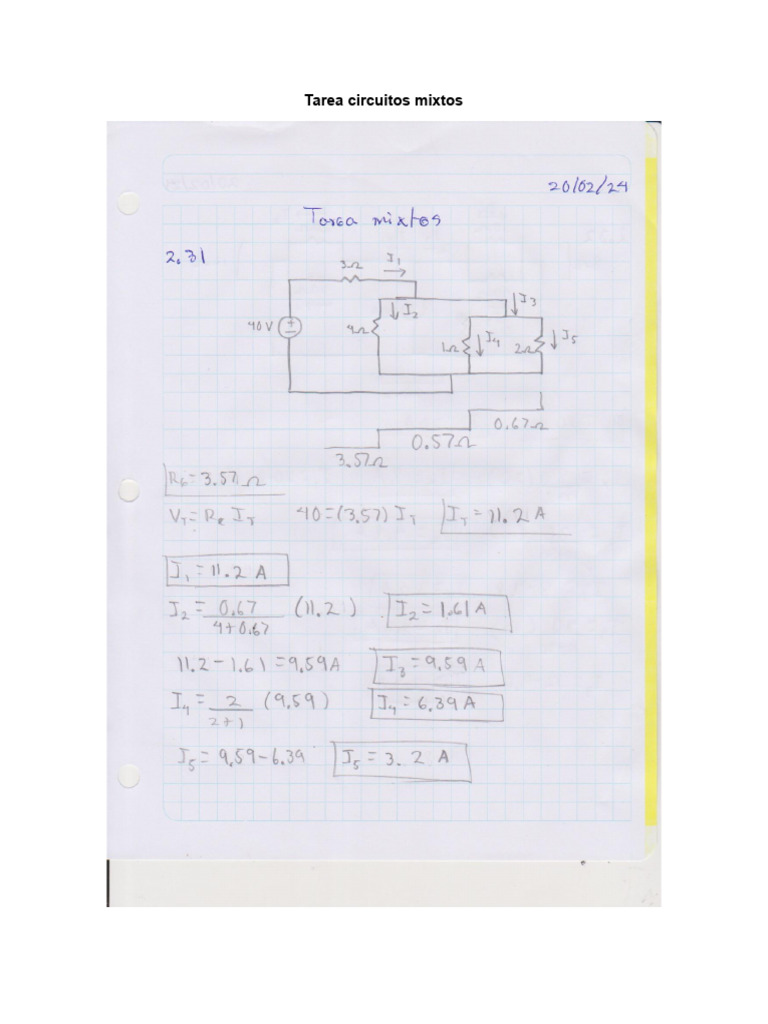 Tarea circuitos mixtos
20/02/24
Tarea mixtos
2.31
3Ω I₁
I₃
I₂
40V 4Ω
1Ω I₄ 2Ω I₅
0.67Ω
0.57Ω
3.57Ω
3.57Ω
V_T = Re I_T 40=(3.57) I_T I_T = 11.2 A
I₁ = 11.2 A
I₂ = 0.67/(4+0.67) (11.2) I₂ = 1.61 A
11.2 - 1.61 = 9.59A I₃ = 9.59 A
I₄ = 2/(2+1) (9.59) I₄ = 6.39 A
I₅ = 9.59 - 6.39 I₅ = 3.2 A